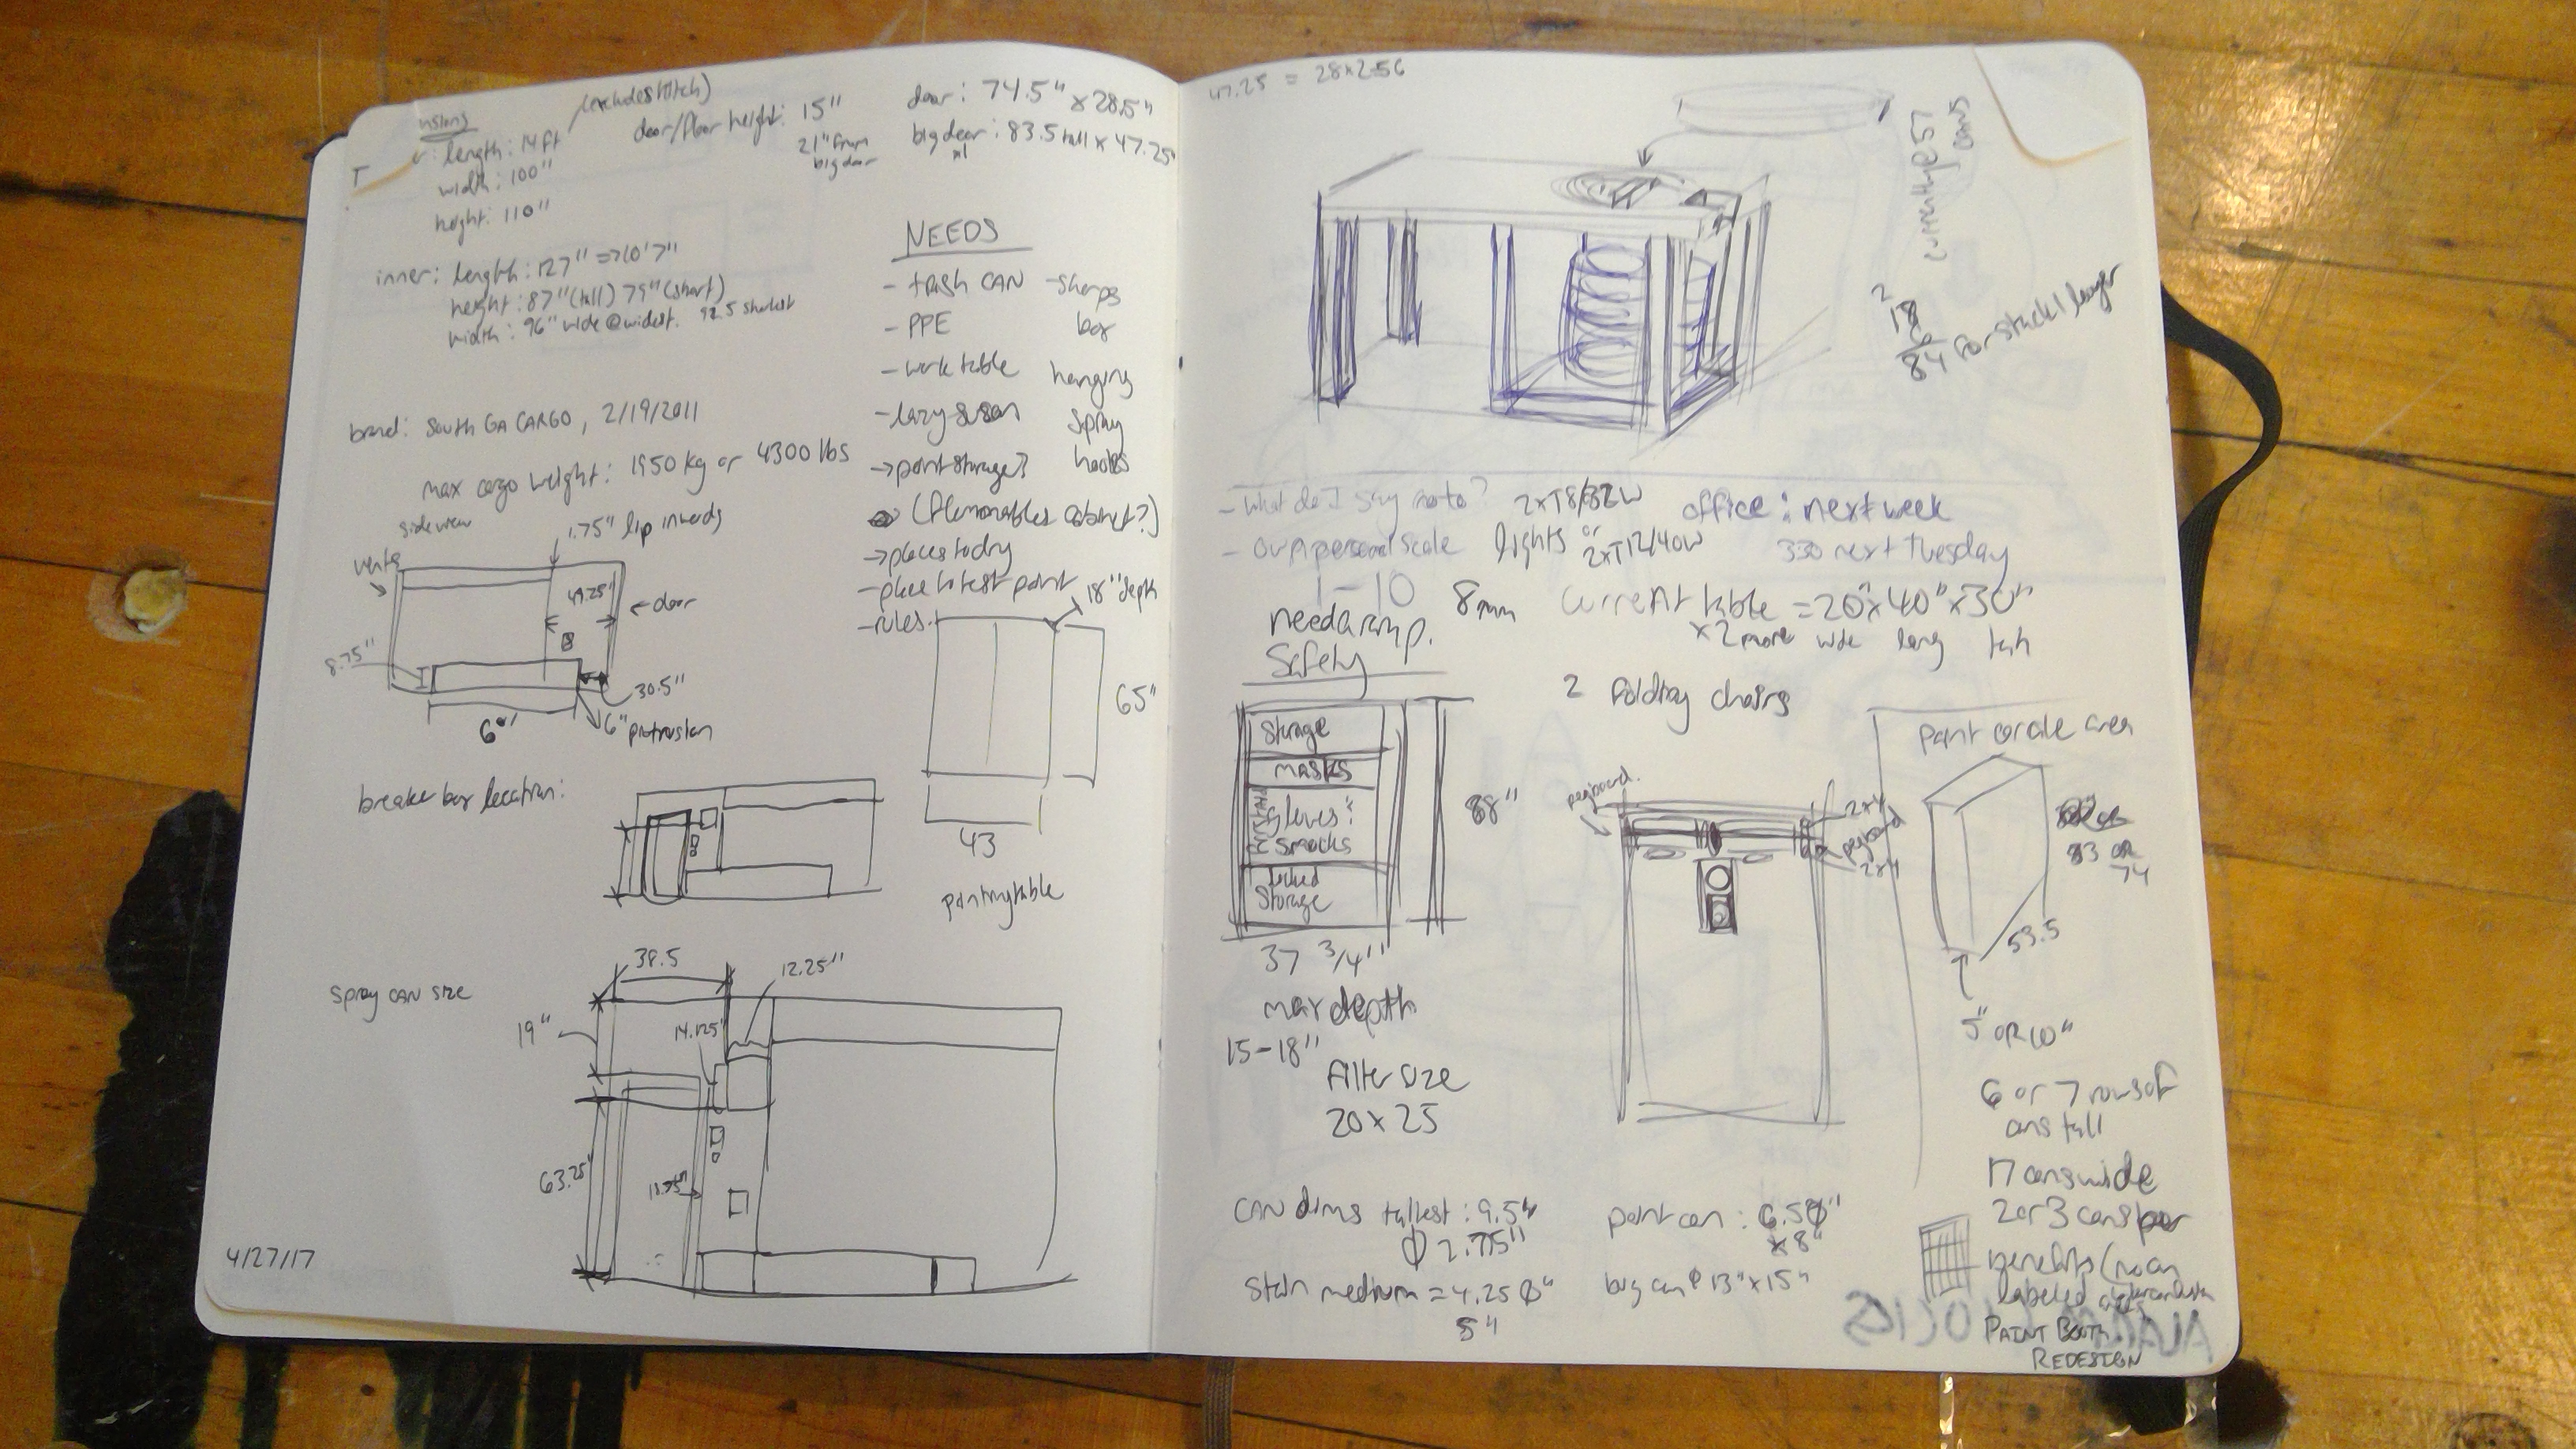 (excludes hitch)
length: 14ft
width: 100"
height: 110"
door/floor height: 15"
21" from
big door
door: 74.5" x 28.5"
big door: 83.5 tall x 47.25"
x1
inner: length: 127" => 10'7"
height: 87" (tall) 79" (short)
width: 96" wide @ widest. 92.5 shortest
brand: South GA CARGO, 2/19/2011
max cargo weight: 1950 kg or 4300 lbs
NEEDS
- trash CAN
- PPE
- work table
- lazy susan
-> paint storage?
(flammables cabinet?)
-> places to dry
- place to test paint
- rules.
- sharps
box
hanging
spray
hooks
side view
1.75" lip inwards
vents
door
8.75"
30.5"
6"
6" protrusion
18" depth
65"
43
painting table
breaker box location:
spray CAN size
38.5
12.25"
19"
14.125"
63.25"
4/27/17
47.25 = 28 x 2 = 56
currently 257
cans
2
84 for stuck! longer
- What do I say no to?
- on a personal scale
1-10
2xT8/32W
lights or
2xT12/40W
office: next week
330 next Tuesday
need a ramp.
8mm
current table = 20" x 40" x 30"
x2 more wide long tall
Safety
2 folding chairs
Storage
MASKS
gloves:
smocks
locked
Storage
88"
37 3/4"
max depth
15-18"
filter size
20 x 25
pegboard.
2x4
pegboard
2x4
Paint can aile area
83 OR
74
53.5
5" OR 10"
6 or 7 rows of
cans tall
17 cans wide
2 or 3 cans per
benefits (no can
labeled
CAN dims tallest: 9.5"
Ø 2.715"
paint can: 6.5Ø"
x 8"
stain medium = 4.25 Ø"
5"
big can Ø 13" x 15"
PAINT BOOTH
REDESIGN